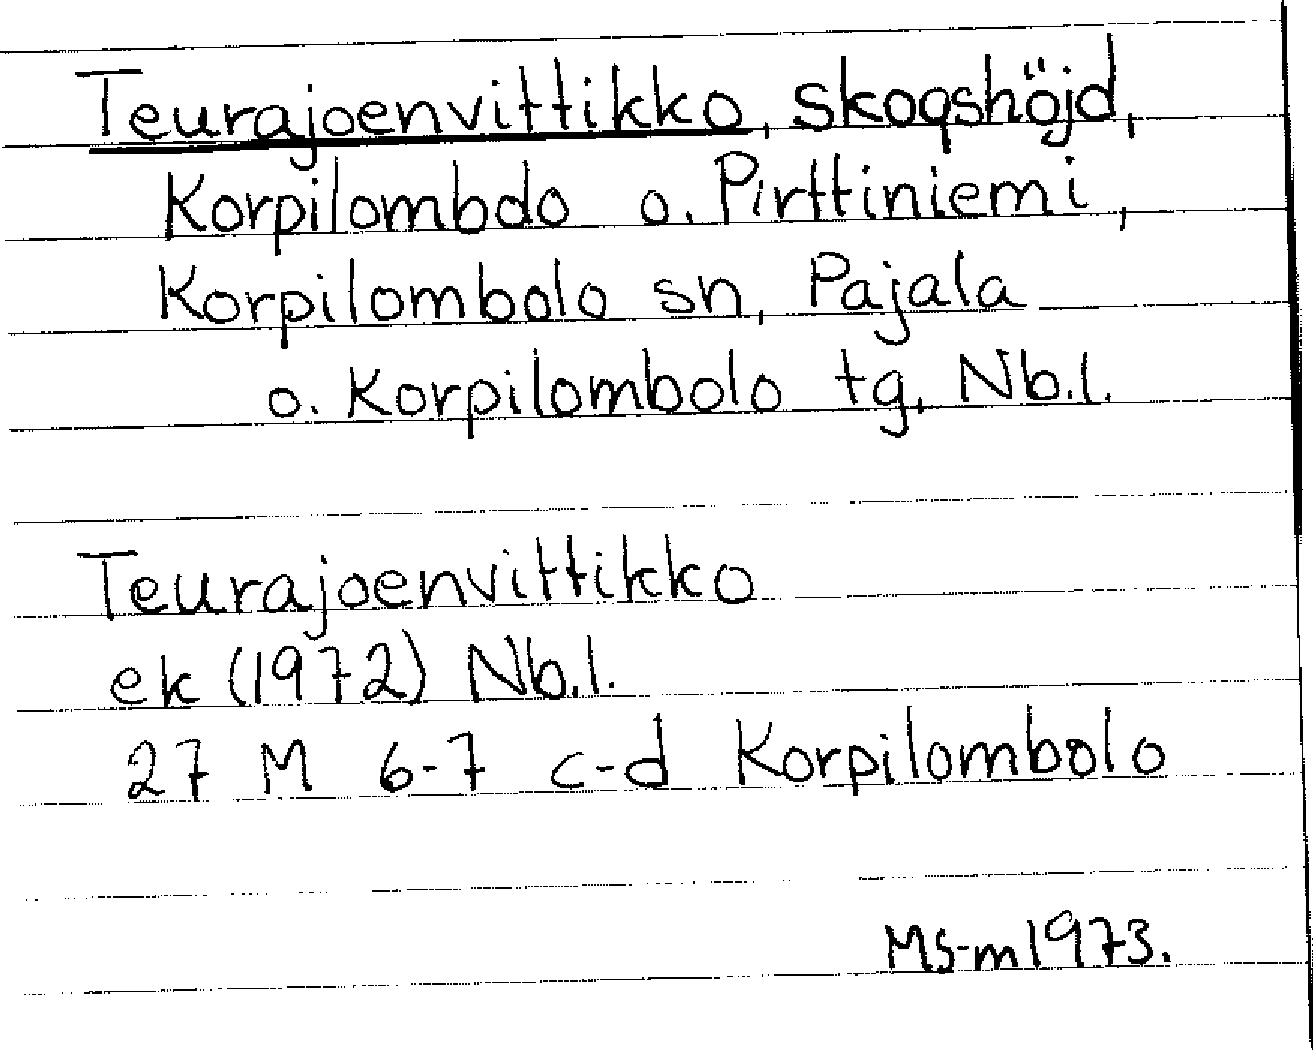 Teurajoenvittikko, skogshöjd,
Korpilombolo o. Pirttiniemi,
Korpilombolo sn, Pajala
o. Korpilombolo tg, Nb.l.
Teurajoenvittikko
ek (1972) Nb.l.
27 M 6-7 c-d Korpilombolo
MS-m 1973.